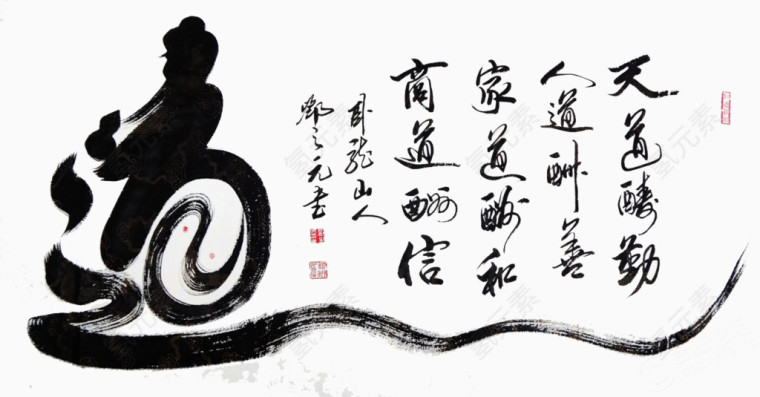 道
天道酬勤
人道酬善
家道酬和
商道酬信
卧龙山人
邓之元书
氢元素